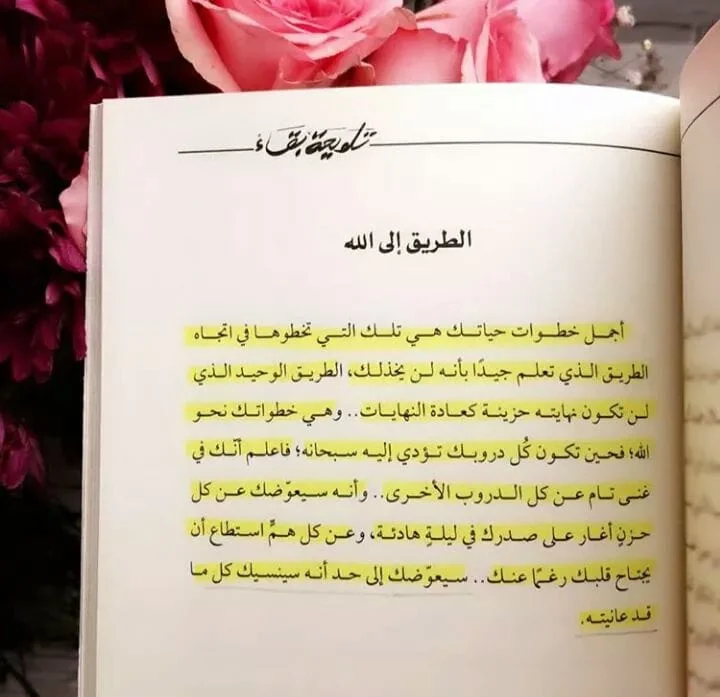 تلويحة بقاء
الطريق إلى الله
أجمل خطوات حياتك هي تلك التي تخطوها في اتجاه
الطريق الذي تعلم جيدًا بأنه لن يخذلك، الطريق الوحيد الذي
لن تكون نهايته حزينة كعادة النهايات.. وهي خطواتك نحو
الله؛ فحين تكون كُل دروبك تؤدي إليه سبحانه؛ فاعلم أنّك في
غنى تام عن كل الدروب الأخرى.. وأنه سيعوّضك عن كل
حزنٍ أغار على صدرك في ليلةٍ هادئة، وعن كل همٍّ استطاع أن
يجتاح قلبك رغمًا عنك.. سيعوّضك إلى حد أنه سينسيك كل ما
قد عانيته.